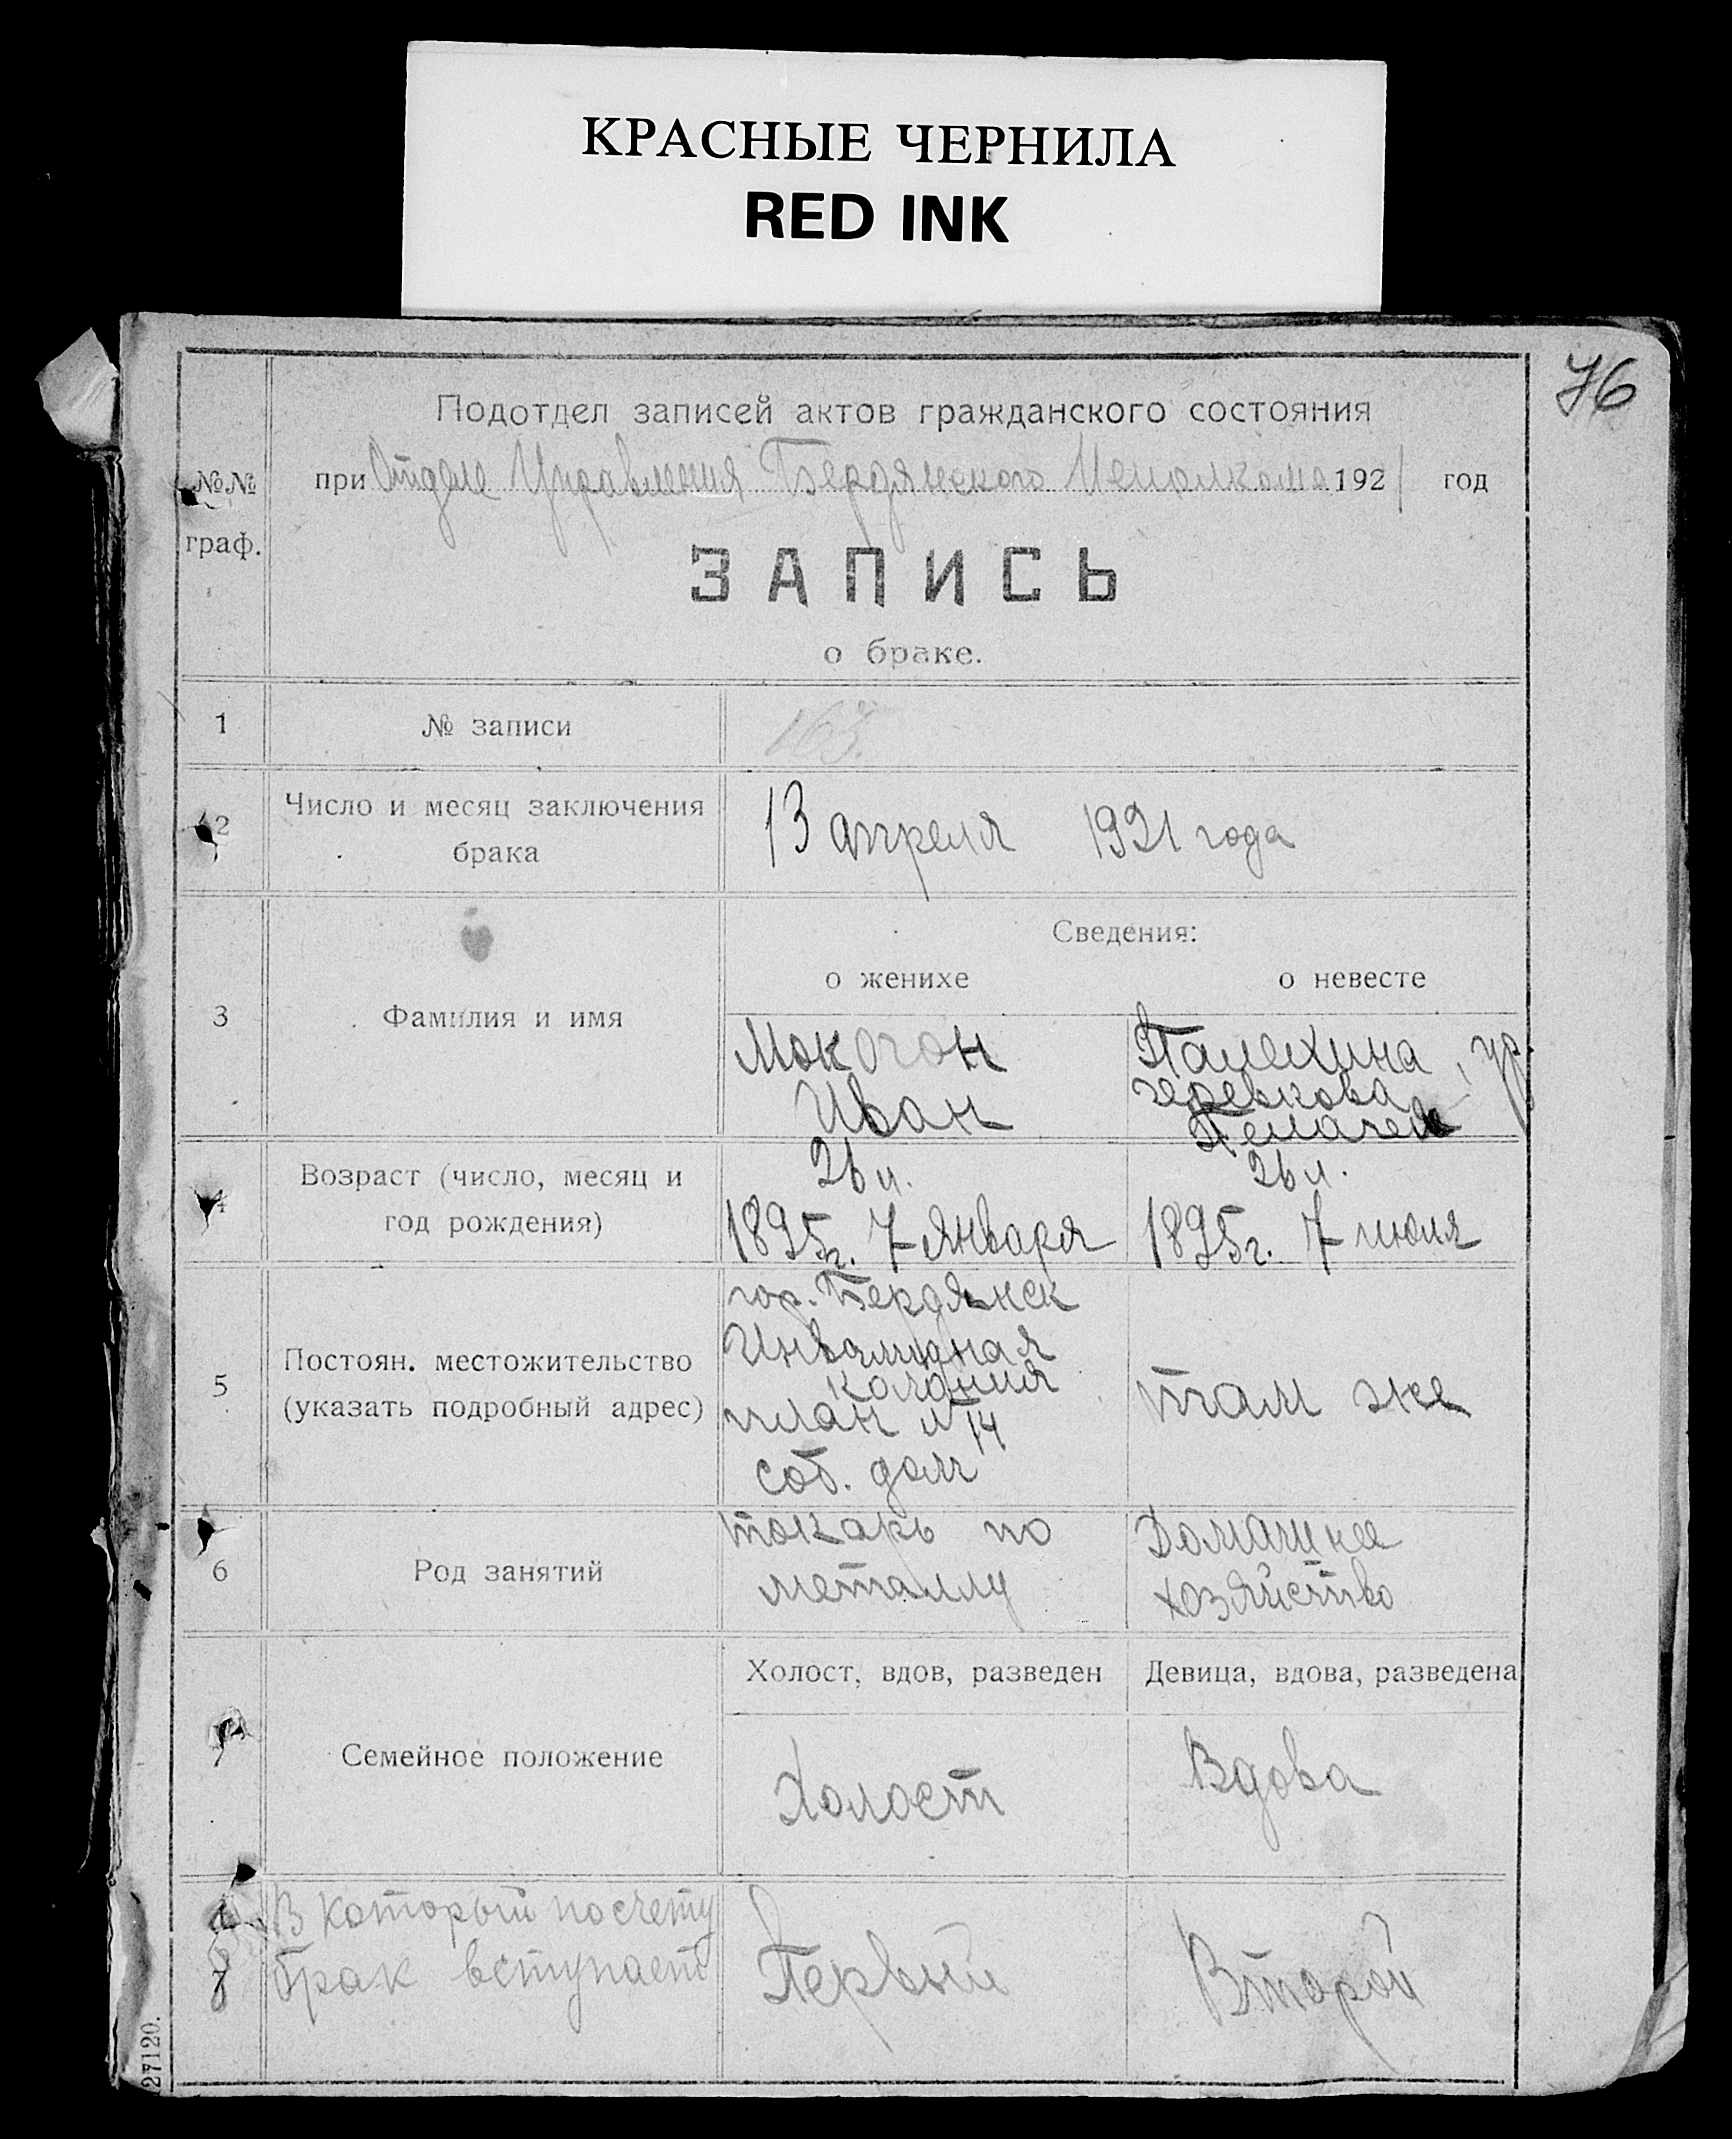 КРАСНЫЕ ЧЕРНИЛА
RED INK
76
№№
граф.
Подотдел записей актов гражданского состояния
при Отделе Управления Бердянского Исполкома 1921 год
ЗАПИСЬ
о браке.
1
№ записи
163.
2
Число и месяц заключения
брака
13 апреля 1921 года
Сведения:
о женихе
о невесте
3
Фамилия и имя
Мокогон
Иван
Палехина, ур.
Пелагея
4
Возраст (число, месяц и
год рождения)
26 л.
1895 г. 7 января
26 л.
1895 г. 7 июля
5
Постоян. местожительство
(указать подробный адрес)
гор. Бердянск
Инвалидная
колония
план №14
соб. дом
там же
6
Род занятий
токарь по
металлу
Домашнее
хозяйство
7
Семейное положение
Холост, вдов, разведен
Девица, вдова, разведена
Холост
Вдова
8
В который по счету
брак вступает
Первый
Второй
27120.